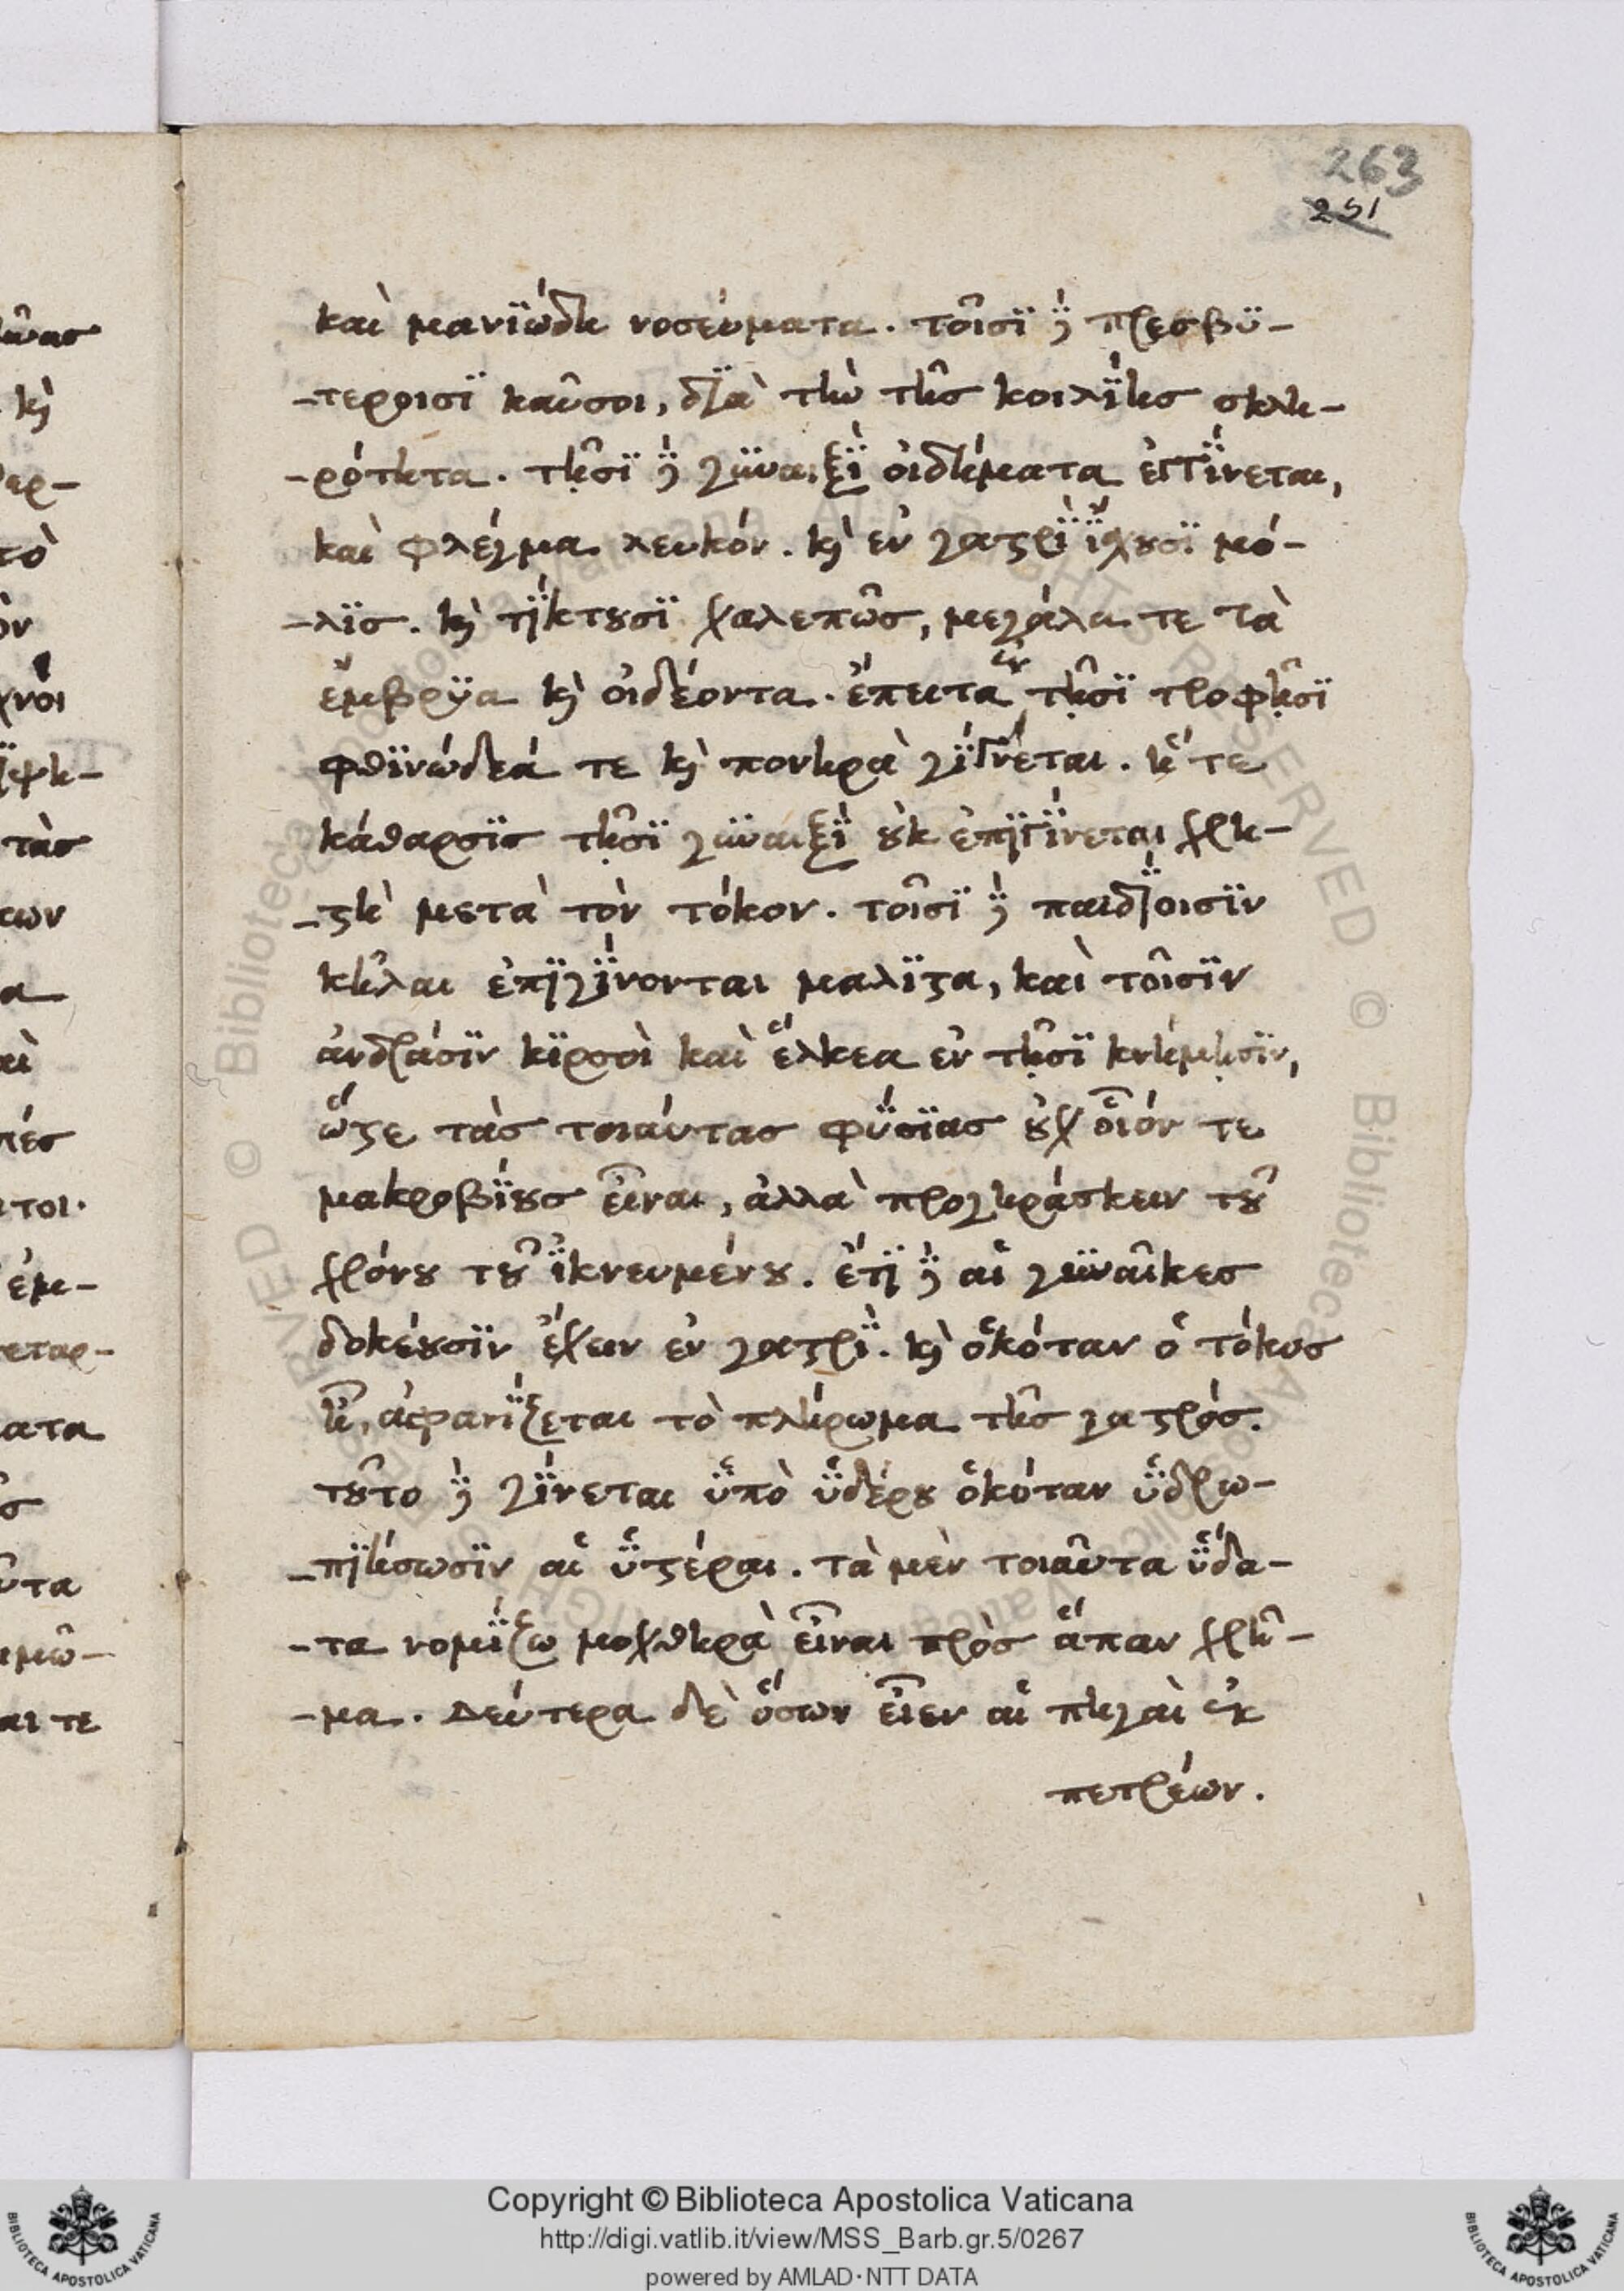 263
251
καὶ μανϊώδη νοσεύματα. τοῖσϊ δὲ πρεσβϋ-
-τεροισϊ καῦσοι, δϊὰ τὴν τῆς κοιλΐης σκλη-
-ρότητα. τῇσϊ δὲ γϋναιξῒ οἰδήματα ἐγγΐνεται,
καὶ φλέγμα λευκόν. καὶ ἐν γαστρῒ ἴσχουσϊ μό-
-λϊς. καὶ τΐκτουσϊ χαλεπῶς, μεγάλα τε τὰ
ἔμβρϋα καὶ οἰδέοντα. ἔπειτα ἐν τῇσϊ τροφῇσϊ
φθϊνώδεά τε καὶ πονηρὰ γΐγνεται. ἥ τε
κάθαρσϊς τῇσϊ γϋναιξῒ οὐκ ἐπϊγΐνεται χρη-
-στὴ μετὰ τὸν τόκον. τοῖσϊ δὲ παιδΐοισϊν
κῆλαι ἐπϊγΐνονται μαλϊστα, καὶ τοῖσϊν
ἀνδράσϊν κϊρσοὶ καὶ ἕλκεα ἐν τῇσϊ κνήμῃσϊν,
ὥστε τὰς τοιαύτας φΰσϊας οὐχ οἷόν τε
μακροβΐους εἶναι, ἀλλὰ προγηράσκειν τοῦ
χρόνου τοῦ ἱκνευμένου. ἔτϊ δὲ αἱ γϋναῖκες
δοκέουσϊν ἔχειν ἐν γαστρῒ. καὶ ὁκόταν ὁ τόκος
ἦ, ἀφανΐζεται τὸ πλήρωμα τῆς γαστρός.
τοῦτο δὲ γΐνεται ὑπὸ ὑδέρου ὁκόταν ὑδρω-
-πϊήσωσϊν αἱ ὑστέραι. τὰ μὲν τοιαῦτα ὕδα-
-τα νομΐζω μοχθηρὰ εἶναι πρὸς ἅπαν χρῆ-
-μα. Δεύτερα δὲ ὅσων εἶεν αἱ πηγαὶ ἐκ
πετρέων.
Copyright © Biblioteca Apostolica Vaticana
http://digi.vatlib.it/view/MSS_Barb.gr.5/0267
powered by AMLAD·NTT DATA